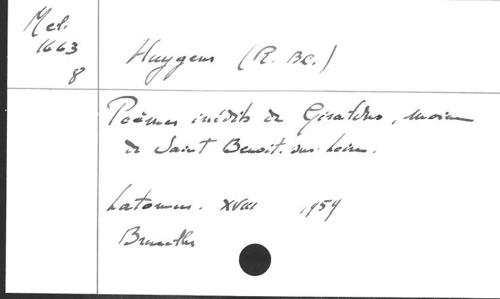 Mel.
1663
8
Huygens (R. BC.)
Poèmes inédits de Giraldus, moine
de Saint Benoit-sur-Loire.
Latomus. XVIII 1959
Bruxelles